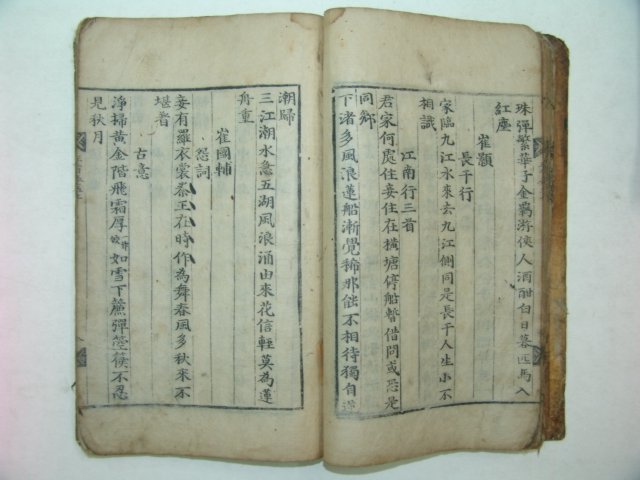 珠彈繁華子金羈游俠人酒酣白日暮匹馬入
紅塵
崔顥
長干行
家臨九江水來去九江側同是長干人生小不
相識
江南行三首
君家何處住妾住在橫塘停船暫借問或恐是
同鄉
下渚多風浪蓮船漸覺稀那能不相待獨自逆
潮歸
三江潮水急五湖風浪涌由來花信輕莫為蓮
舟重
崔國輔
怨詞
妾有羅衣裳秦王在時作為舞春風多秋來不
堪着
古意
淨掃黃金階飛霜厚皎如雪下簾彈箜篌不忍
見秋月